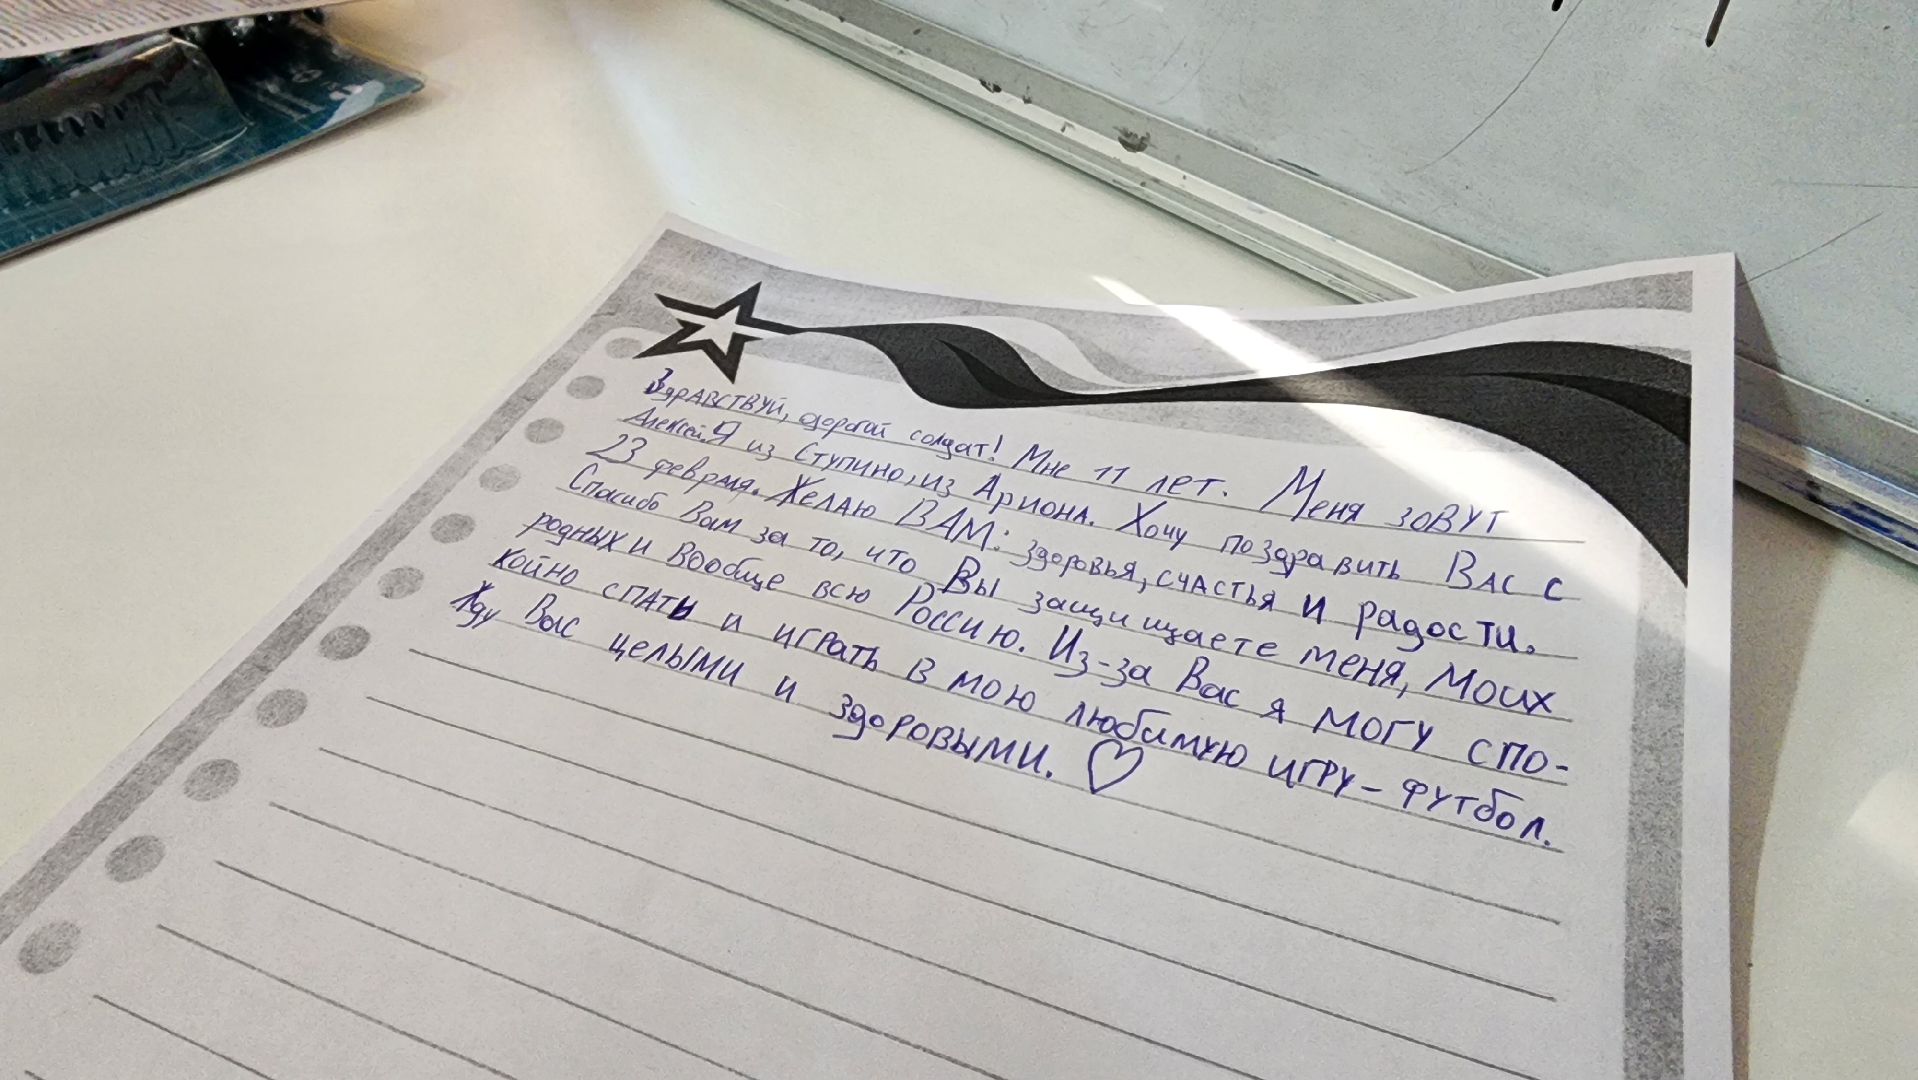 Здравствуй, дорогой солдат! Мне 11 лет. Меня зовут
Алексей. Я из Ступино, из Ариона. Хочу поздравить Вас с
23 февраля. Желаю ВАМ: здоровья, счастья и радости.
Спасибо Вам за то, что Вы защищаете меня, моих
родных и вообще всю Россию. Из-за Вас я могу спо-
койно спать и играть в мою любимую игру - футбол.
Жду Вас целыми и здоровыми.